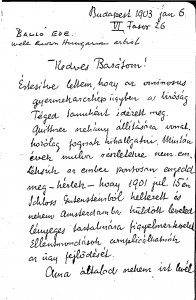 Budapest 1903 jan 6.
VI Fasor 26
Balló Ede.
well known Hungarian artist
Kedves Barátom!
Értesítve lettem, hogy az ominosus
gyermekarczkép ügyben a biróság
Téged tanuként idézett meg.
Quittner néhány állitására vonat-
kozólag fognak kihallgatni. Miután
évek mulva részletekre nem em-
lékszik az ember pontosan engedd
meg – kérlek – hogy 1901 jul. 15én
Schloss Gutensteinból keltezett és
nekem Amsterdamba küldött leveled
lényeges tartalmára figyelmeztesselek
Ellenmondások complicálhatnák
az ügy fejlődését.
Ama általad nekem írt levél